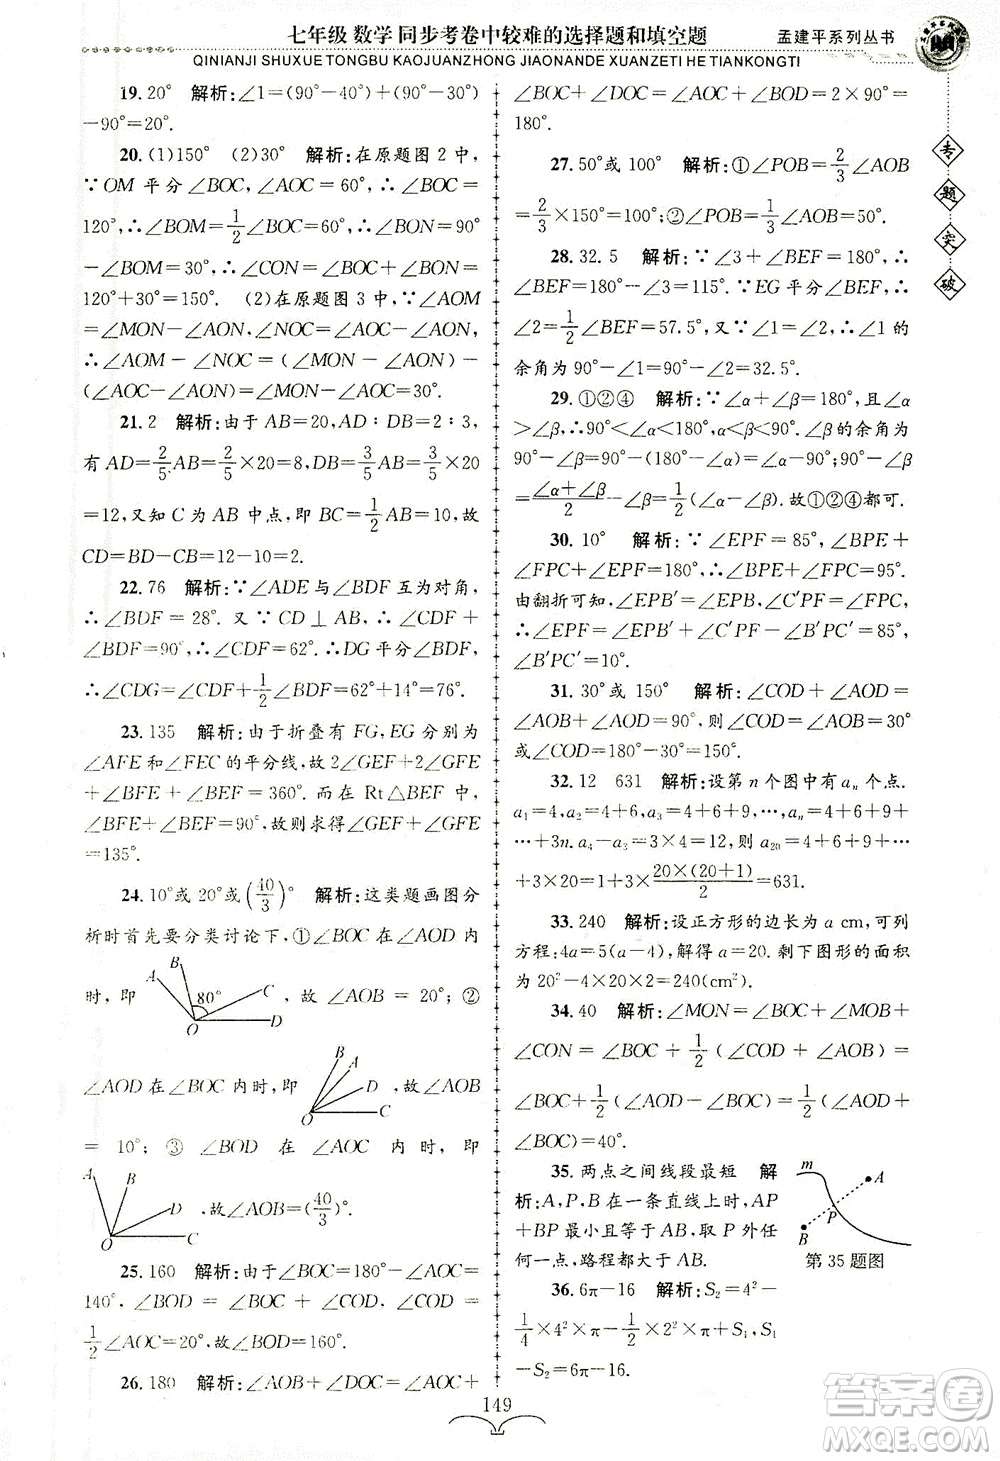 七年级 数学 同步考卷中较难的选择题和填空题
孟建平系列丛书
QINIANJI SHUXUE TONGBU KAOJUANZHONG JIAONANDE XUANZETI HE TIANKONGTI
专
题
突
破
19. 20° 解析:∠1=(90°-40°)+(90°-30°)
-90°=20°.
20. (1)150° (2)30° 解析:在原题图 2 中,
∵OM 平分∠BOC,∠AOC = 60°,∴∠BOC =
120°,∴∠BOM = 1/2 ∠BOC = 60°,∴∠BON = 90°
-∠BOM=30°,∴∠CON=∠BOC+∠BON=
120°+30°=150°. (2)在原题图 3 中,∵∠AOM
=∠MON-∠AON,∠NOC=∠AOC-∠AON,
∴∠AOM - ∠NOC = (∠MON - ∠AON) -
(∠AOC-∠AON)=∠MON-∠AOC=30°.
21. 2 解析:由于 AB=20,AD:BD=2:3,
有 AD=2/5 AB=2/5×20=8,BD=3/5 AB=3/5×20
=12,又知 C 为 AB 中点,即 BC=1/2 AB=10,故
CD=BD-CB=12-10=2.
22. 76 解析:∵∠ADE 与∠BDF 互为对角,
∴∠BDF = 28°. 又 ∵ CD ⊥ AB, ∴ ∠CDF +
∠BDF=90°,∴∠CDF=62°.∵DG 平分∠BDF,
∴∠CDG=∠CDF+1/2∠BDF=62°+14°=76°.
23. 135 解析:由于折叠有 FG,EG 分别为
∠AFE 和∠FEC 的平分线,故 2∠GEF+2∠GFE
+∠BFE + ∠BEF = 360°. 而 在 Rt△BEF 中,
∠BFE+∠BEF=90°,故则求得∠GEF+∠GFE
=135°.
24. 10°或 20°或(40/3)° 解析:这类题画图分
析时首先要分类讨论下,①∠BOC 在∠AOD 内
时,即
A
B
80°
C
O
D
,故∠AOB = 20°;②
∠AOD 在∠BOC 内时,即
B
A
D
O
C
,故∠AOB
= 10°; ③ ∠BOD 在 ∠AOC 内时,即
A
B
D
O
C
,故∠AOB=(40/3)°.
25. 160 解析:由于∠BOC=180°-∠AOC=
140°,∠BOD = ∠BOC + ∠COD = ∠BOC +
1/2∠AOC=20°,故∠BOD=160°.
26. 180 解析:∠AOB+∠DOC=∠AOC+
∠BOC+∠DOC=∠AOC+∠BOD=2×90°=
180°.
27. 50°或 100° 解析:①∠POB=2/3∠AOB
=2/3×150°=100°;②∠POB=1/3∠AOB=50°.
28. 32.5 解析:∵∠3+∠BEF=180°,∴
∠BEF=180°-∠3=115°.∵EG 平分∠BEF,∴
∠2=1/2∠BEF=57.5°,又∵∠1=∠2,∴∠1 的
余角为 90°-∠1=90°-∠2=32.5°.
29. ①②④ 解析:∵∠α+∠β=180°,且∠α
>∠β,∴90°<∠α<180°,∠β<90°.∠β的余角为
90°-∠β=90°-(180°-∠α)=∠α-90°.90°-∠β
=(∠α+∠β)/2-∠β=1/2(∠α-∠β).故①②④都可.
30. 10° 解析:∵∠EPF=85°,∴∠BPE+
∠FPC+∠EPF=180°,∴∠BPE+∠FPC=95°.
由翻折可知,∠EPB′=∠EPB,∠C′PF=∠FPC,
∴∠EPF=∠EPB′+∠FPC′-∠B′PC′=85°,
∠B′PC′=10°.
31. 30°或 150° 解析:∠COD+∠AOD=
∠AOB+∠AOD=90°,则∠COD=∠AOB=30°
或∠COD=180°-30°=150°.
32. 12 631 解析:设第 n 个图中有 aₙ 个点.
a₁=4,a₂=4+6,a₃=4+6+9,…,aₙ=4+6+9+…
+3n.a₄-a₃=3×4=12,则 a₂₀=4+6+9+…
+3×20=1+3×20×(20+1)/2=631.
33. 240 解析:设正方形的边长为 a cm,可列
方程:4a=5(a-4),解得 a=20.剩下图形的面积
为 20²-4×20×2=240(cm²).
34. 40 解析:∠MON=∠BOC+∠MOB+
∠CON = ∠BOC + 1/2(∠COD + ∠AOB) =
∠BOC+1/2(∠AOD-∠BOC)=1/2(∠AOD+
∠BOC)=40°.
35. 两点之间线段最短 解
析:A,P,B 在一条直线上时,AP
+BP 最小且等于 AB,取 P 外任
何一点,路程都大于 AB.
m
A
P
B
第 35 题图
36. 6π-16 解析:S₂=4²-
1/4×4²×π-1/2×2²×π+S₁,S₁
-S₂=6π-16.
149
答案卷